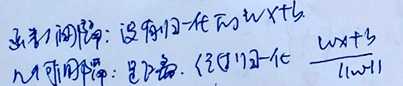 函数间隔：没有归一化的 wx+b
几何间隔：是距离. 经过归一化 wx+b / ||w||